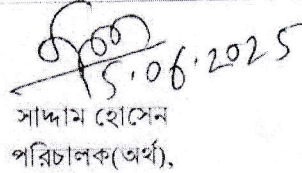 15.06.2025
সাদ্দাম হোসেন
পরিচালক(অর্থ),